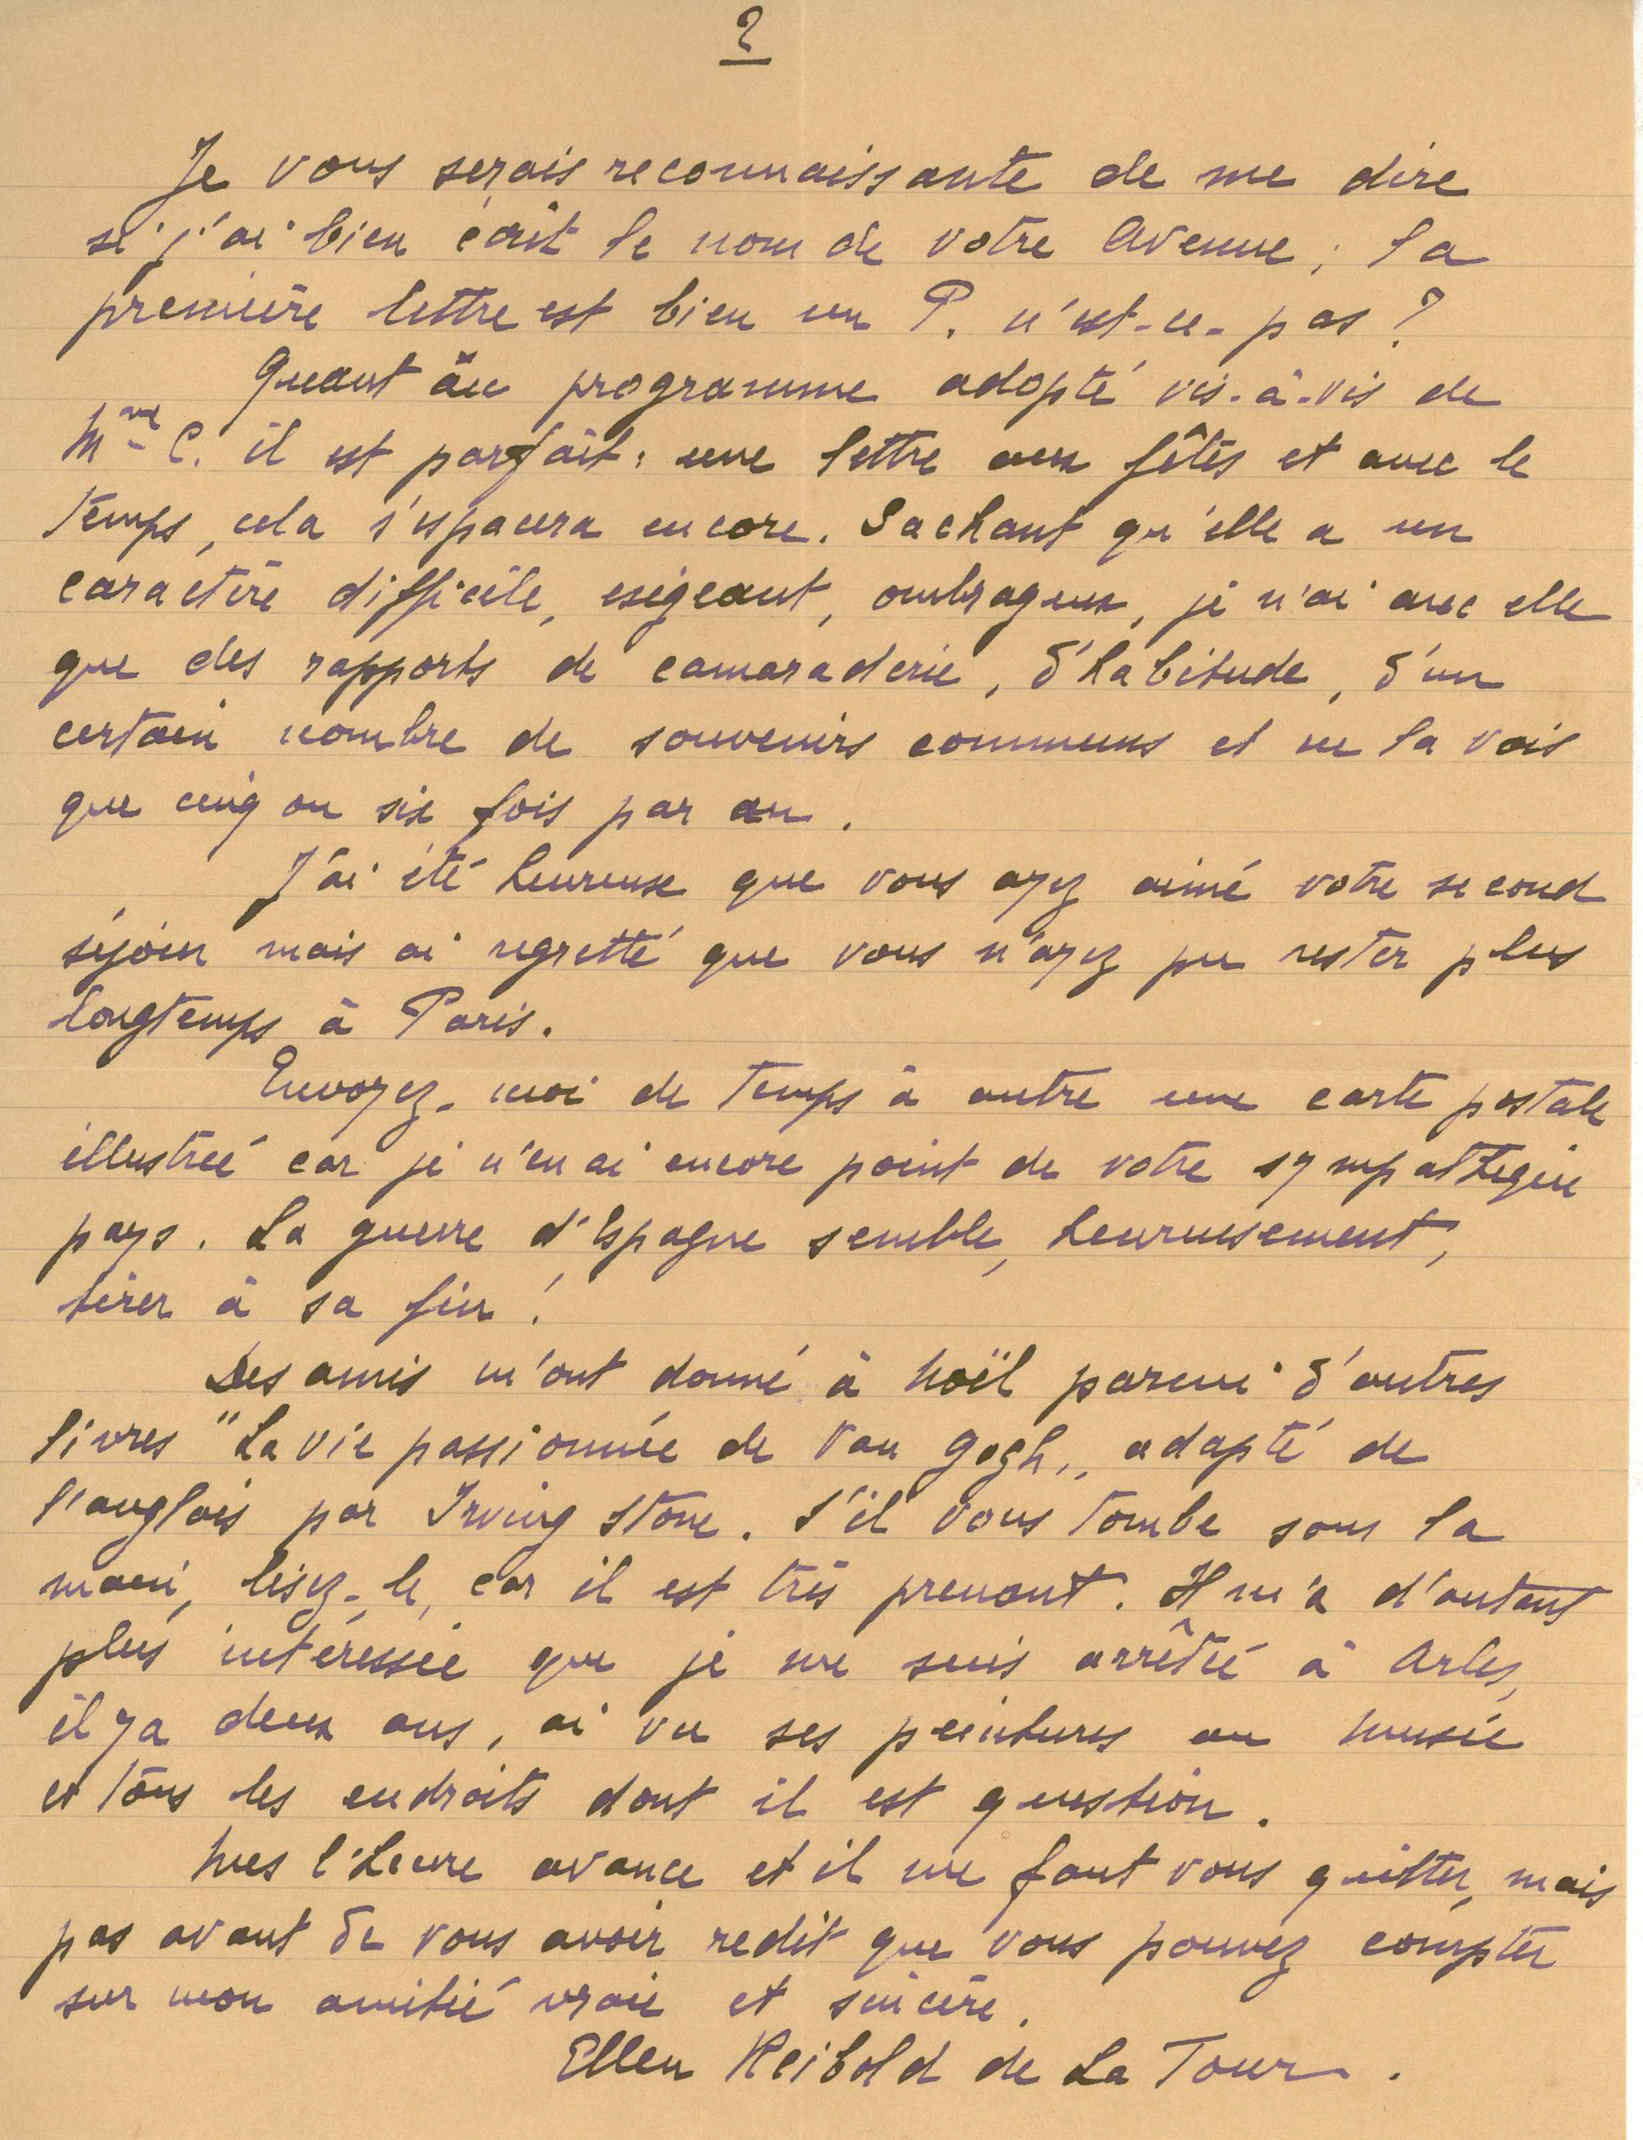 2
Je vous serais reconnaissante de me dire
si j'ai bien écrit le nom de votre Avenue ; la
première lettre est bien un P. n'est-ce-pas ?
Quant au programme adopté vis-à-vis de
Mme C. il est parfait : une lettre aux fêtes et avec le
temps, cela s'espacera encore. Sachant qu'elle a un
caractère difficile, exigeant, ombrageux, je n'ai avec elle
que des rapports de camaraderie, d'habitude, d'un
certain nombre de souvenirs communs et ne la vois
que cinq ou six fois par an.
J'ai été heureuse que vous ayez aimé votre second
séjour mais ai regretté que vous n'ayez pu rester plus
longtemps à Paris.
Envoyez-moi de temps à autre une carte postale
illustrée car je n'en ai encore point de votre sympathique
pays. La guerre d'Espagne semble, heureusement,
tirer à sa fin !
Des amis m'ont donné à Noël parmi d'autres
livres "La vie passionnée de Van Gogh,, adapté de
l'anglais par Irving Stone. S'il vous tombe sous la
main, lisez-le, car il est très prenant. Il m'a d'autant
plus intéressée que je me suis arrêtée à Arles,
il y a deux ans, ai vu ses peintures au Musée
et tous les endroits dont il est question.
Mes l'heure avance et il me faut vous quitter, mais
pas avant de vous avoir redit que vous pouvez compter
sur mon amitié vraie et sincère.
Ellen Heibold de La Tour.